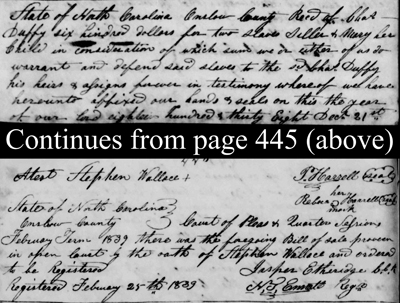 State of North Carolina Onslow County Recd of Chas
Duffy six hundred dollers for two slaves Seller & Mary her
Child in consideration of which sum we do either of us do
warrant and defend said slaves to the sd Chas Duffy
his heirs & asigns forever in testimony whereof we have
hereunto affixed our hands & seals on this the year
of our lord eighteen hundred & thirty Eight Decr 21st
Continues from page 445 (above)
Atest Stephen Wallace
her
mark
State of North Carolina
Onslow County Court of Pleas & Quarter Sessions
February Term 1839 there was the foregoing Bill of sale proven
in open Court by the oath of Stephen Wallace and ordered
to be Registered
Jasper Etheridge
Registered February 25th 1839